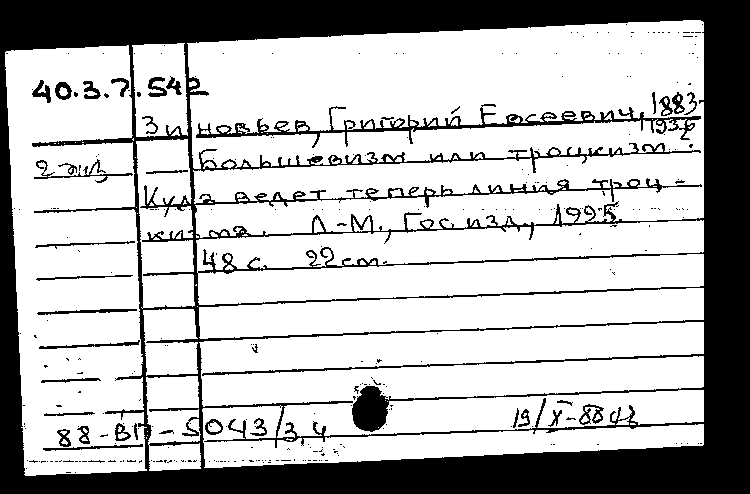 40.3.7.542
Зиновьев, Григорий Евсеевич, 1883-
1936
2 экз Большевизм или троцкизм?
Куда ведет теперь линия троц-
кизма. Л.-М., Гос. изд., 1925.
48 с. 22 cm.
88-ВП-5043/3,4 19/X-88